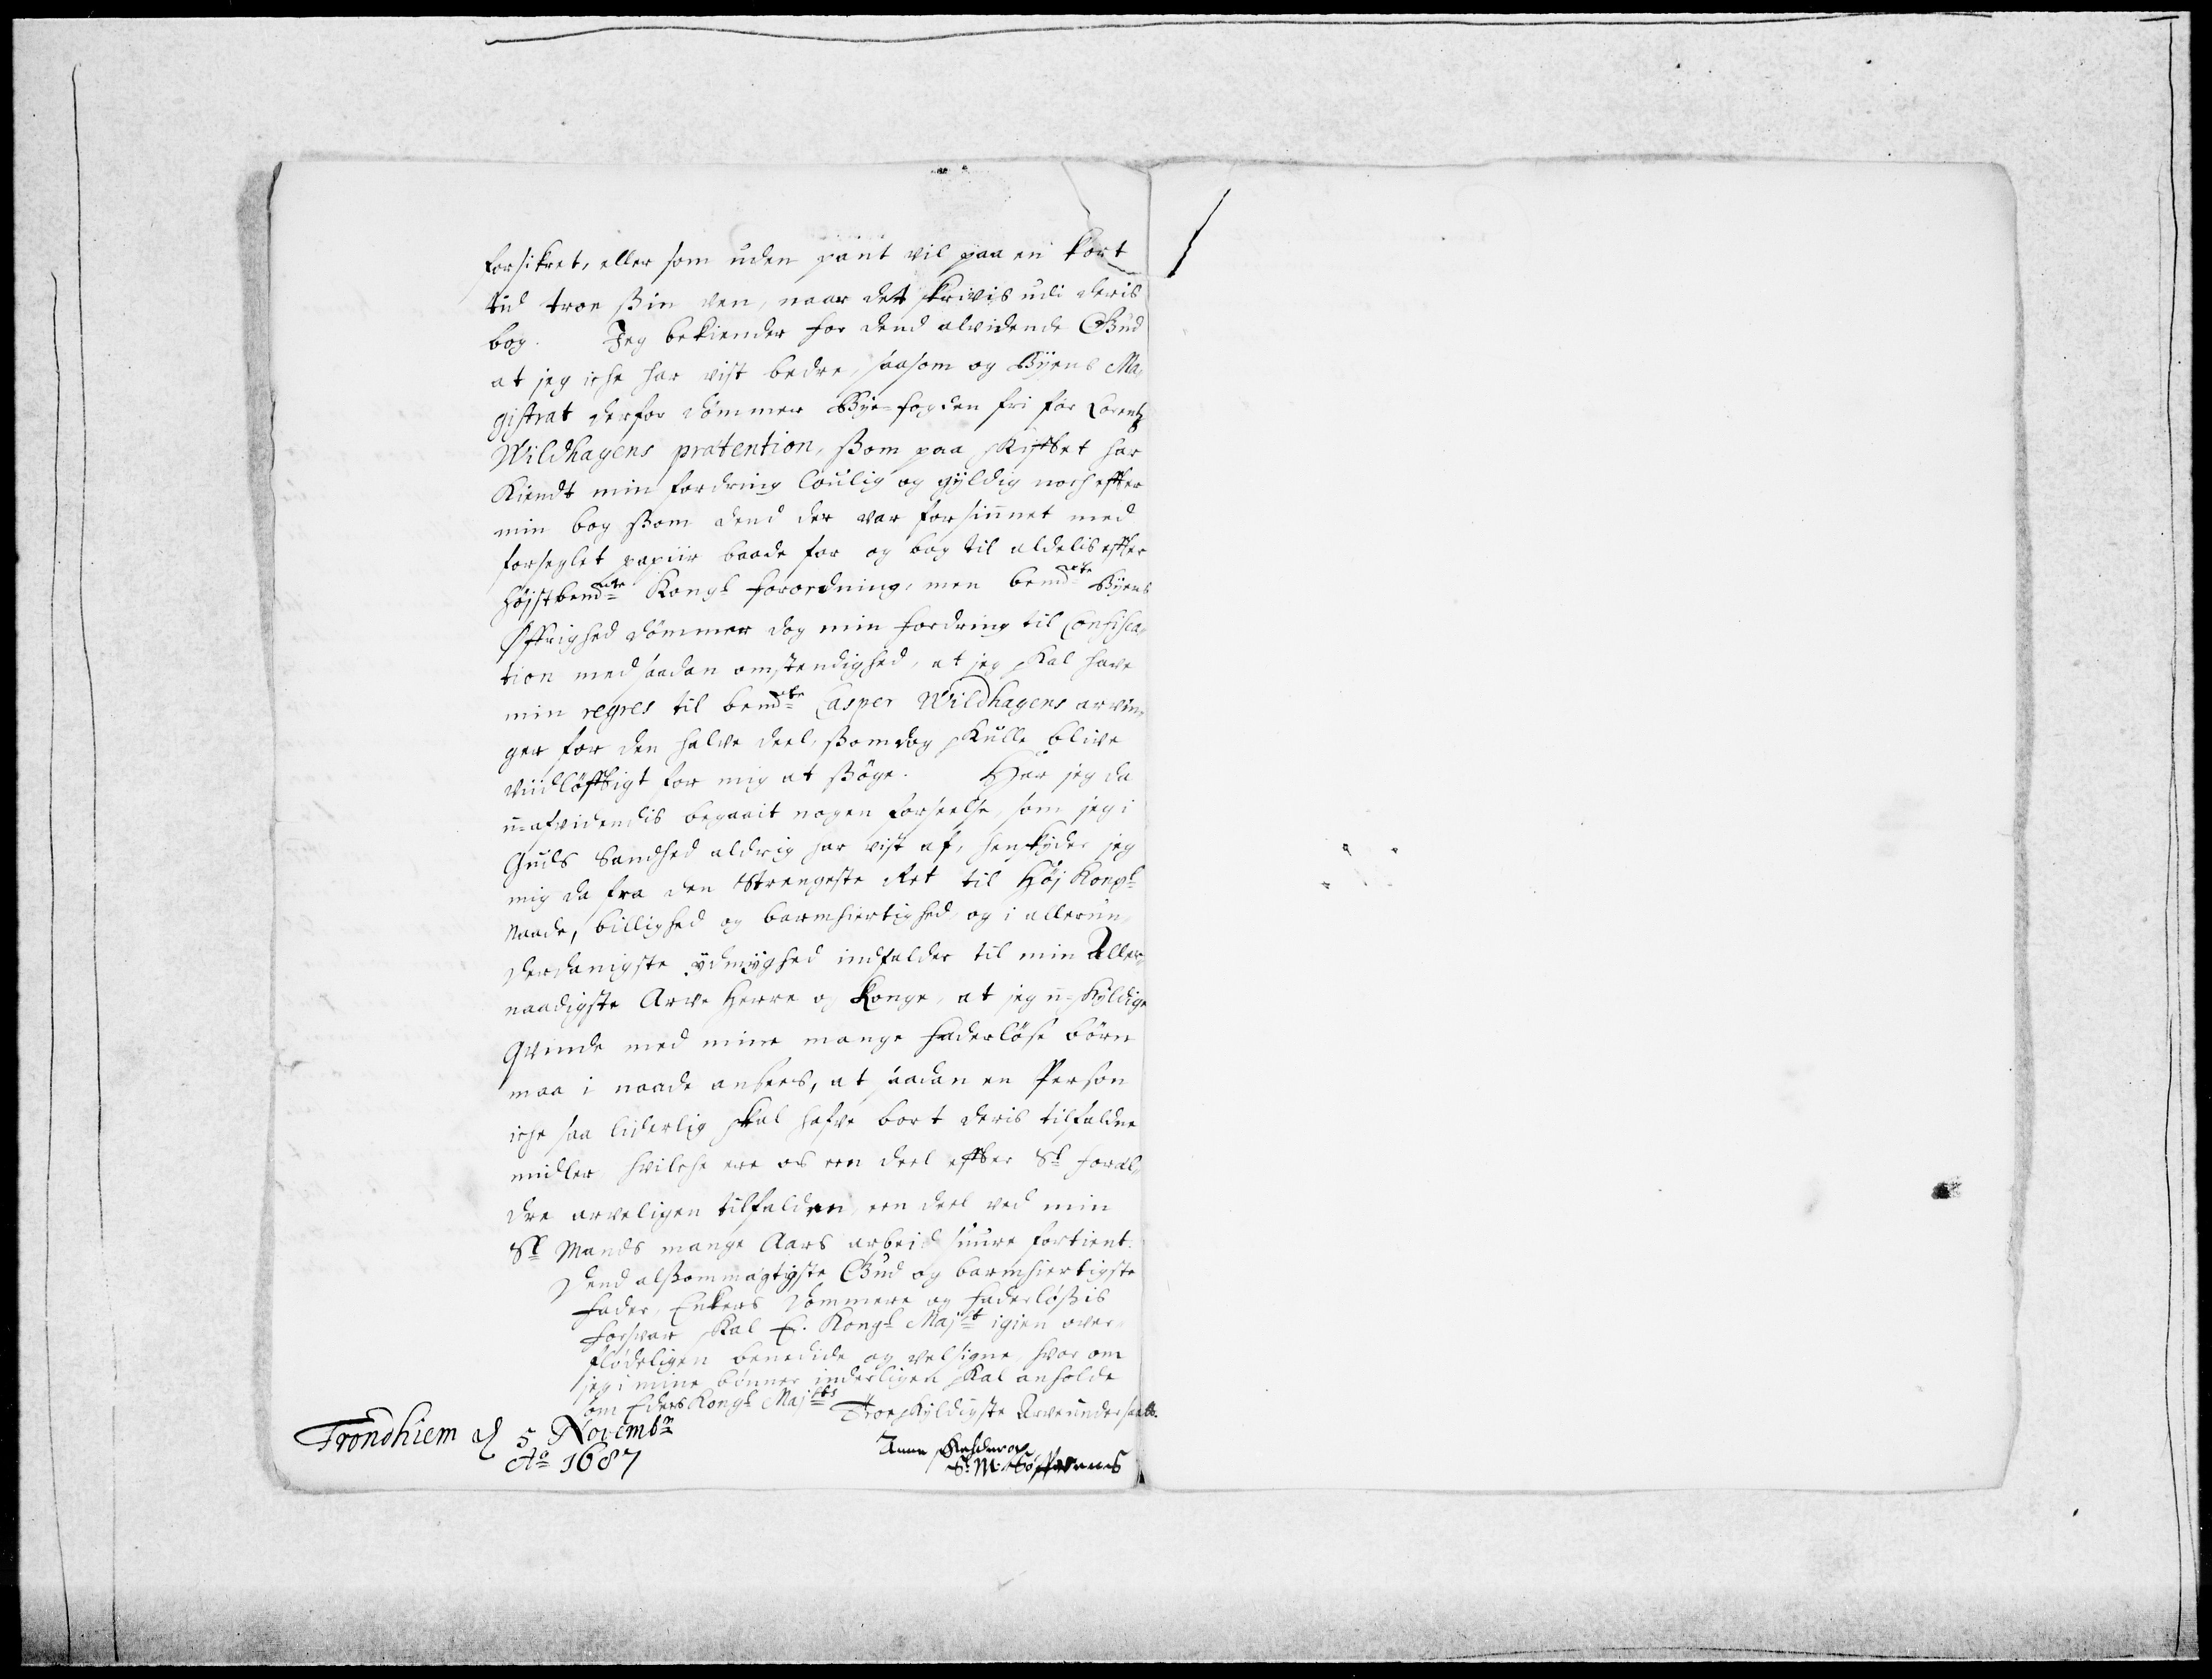 forsikret, eller som uden pant vil paa en kort
tid troe sin ven, naar det skrivis udi deris
bog. Jeg bekiender for dend alvidende Gud
at jeg iche har vist bedre, saasom og Byens Ma-
gistrat derfor dömmer Bye-fogden fri for Lorentz
Wildhagens prætention, som paa skiftet har
Kiendt min fordring loulig og gyldig noch efter
min bog som dend der var forsiunet med
forseglet papiir baade for og bag til aldelis efter
höjstbemdte Kongl forordning, men bemdte Byens
Øfrighed dömmer dog min fordring til Confisca-
tion med saadan omstendighed, at jeg skal have
min regres til bemdte Casper Wildhagens arvin-
ger for den halve deel, som dog skulle blive
vidlöfftigt for mig at söge. Har jeg da
u-afvidendis begaait nogen forseelse, som jeg i
Guds Sandhed aldrig har vist af, henskyder jeg
mig da fra den Strengeste Ret til Höj Kongl
Naade, billighed og barmhiertighed, og i allerun-
derdanigste ydmyghed indfalder til min Aller-
naadigste Arve Herre og Konge, at jeg u-skyldige
Qvinde med mine mange faderlöse börn
maa i naade ansees, at saadan en Person
iche saa liderlig skal hafve bort deris tilfaldne
midler hvilche ere os een deel efter Sl foræl-
dre arveligen tilfalden, een deel ved min
Sl Mands mange Aars arbeid suure fortient.
Dend alsommægtigste Gud og barmhiertigste
Fader, Enkers Dommere og faderlössis
forsvar skal E. Kongl Majst igien over-
flödeligen benedide og velsigne, hvor om
jeg i mine bönner inderligen skal anholde
om Eders Kongl Majtts
Troeskyldigste Arveundersaatt.
Trondhiem d 5 Novembr
Ao 1687
Anne
Sl M.